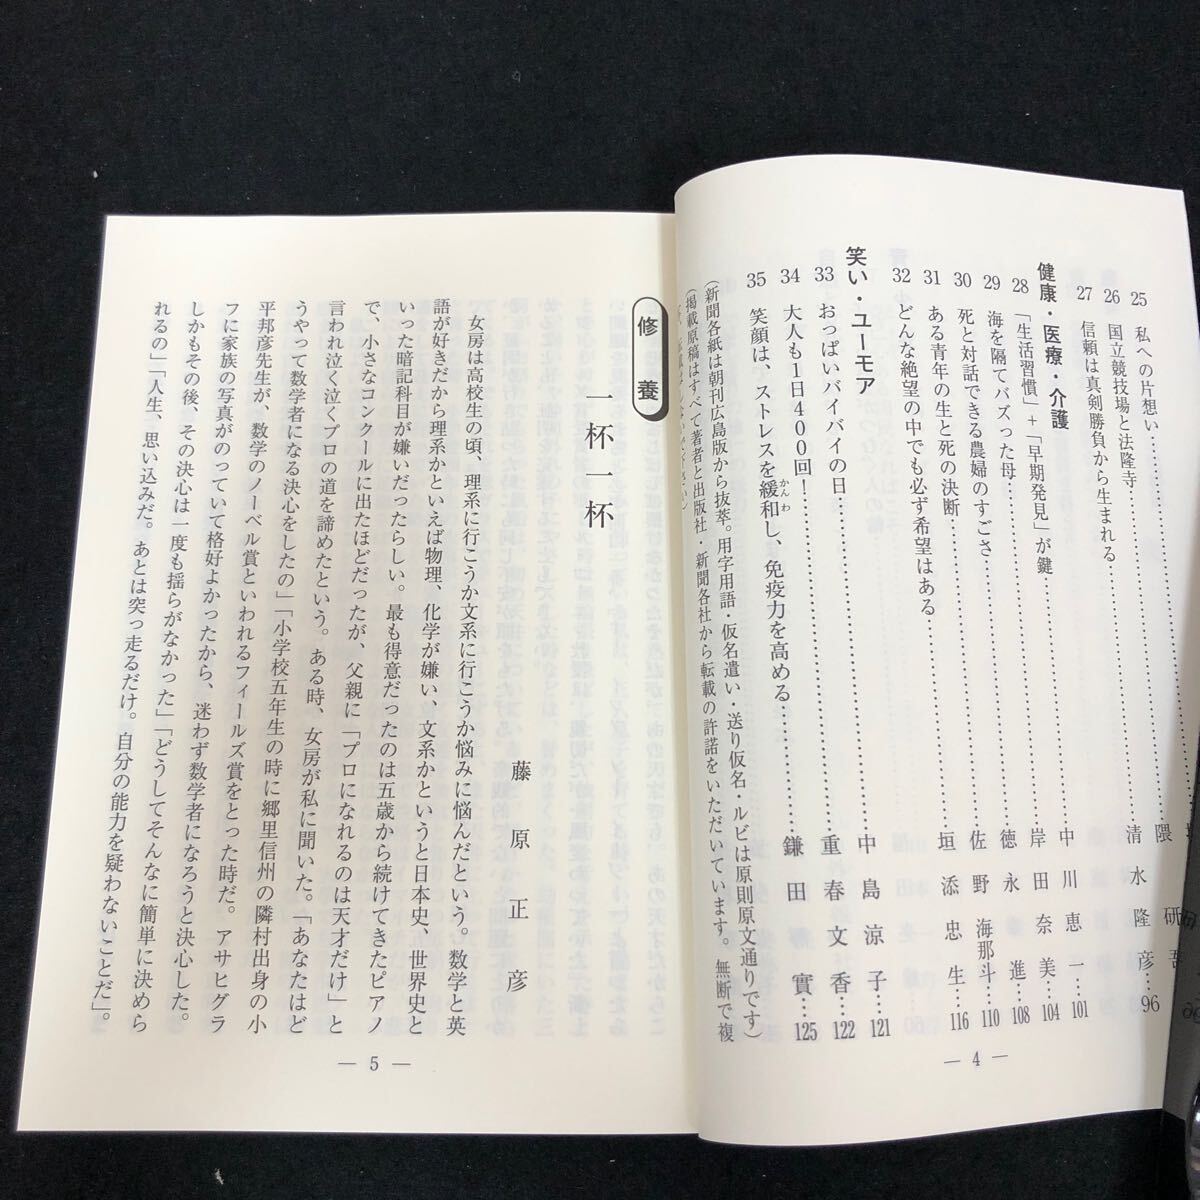 25 私への片想い
26 国立競技場と法隆寺………隈 研吾
27 信頼は真剣勝負から生まれる………清水隆彦…96
健康・医療・介護
28 「生活習慣」+「早期発見」が鍵………中川恵一…101
29 海を隔てバズった母………岸田奈美…104
30 死と対話できる農婦のすごさ………徳永 進…108
31 ある青年の生と死の決断………佐野海那斗…110
32 どんな絶望の中でも必ず希望はある………垣添忠生…116
笑い・ユーモア
33 おっぱいバイバイの日………中島涼子…121
34 大人も1日400回!………重春文香…122
35 笑顔は、ストレスを緩和し、免疫力を高める…………鎌田 實…125
かんわ
(新聞各紙は朝刊広島版から抜萃。用字用語・仮名遣い・送り仮名・ルビは原則原文通りです)
(掲載原稿はすべて著者と出版社・新聞各社から転載の許諾をいただいています。無断で複
— 4 —
修養
一杯一杯
藤原正彦
女房は高校生の頃、理系に行こうか文系に行こうか悩みに悩んだという。数学と英
語が好きだから理系かといえば物理、化学が嫌い、文系かというと日本史、世界史と
いった暗記科目が嫌いだったらしい。最も得意だったのは五歳から続けてきたピアノ
で、小さなコンクールに出たほどだったが、父親に「プロになれるのは天才だけ」と
言われ泣く泣くプロの道を諦めたという。ある時、女房が私に聞いた。「あなたはど
うやって数学者になる決心をしたの」「小学校五年生の時に郷里信州の隣村出身の小
平邦彦先生が、数学のノーベル賞といわれるフィールズ賞をとった時だ。アサヒグラ
フに家族の写真がのっていて格好よかったから、迷わず数学者になろうと決心した。
しかもその後、その決心は一度も揺らがなかった」「どうしてそんなに簡単に決めら
れるの」「人生、思い込みだ。あとは突っ走るだけ。自分の能力を疑わないことだ」。
— 5 —